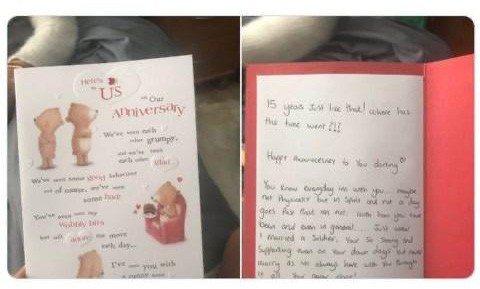 Here's
to US
on Our
Anniversary
We've seen each
other grumpy,
and we've seen
each other
We've seen some good behaviour
and of course, we've seen
some
You've even seen my
wobbly bits
but still me more
each day...
I've you with
15 years Just like that! where has
the time went ?!?
Happy Anniversary to You darling
You know everyday im with you... maybe
not Physically but in Spirit and not a day
goes Past that im not. how you have
been and even in general..... Just
I married a Soldier. Your So Strong and
Supporting even on Your down days but never
worry as im always here with You through
it all